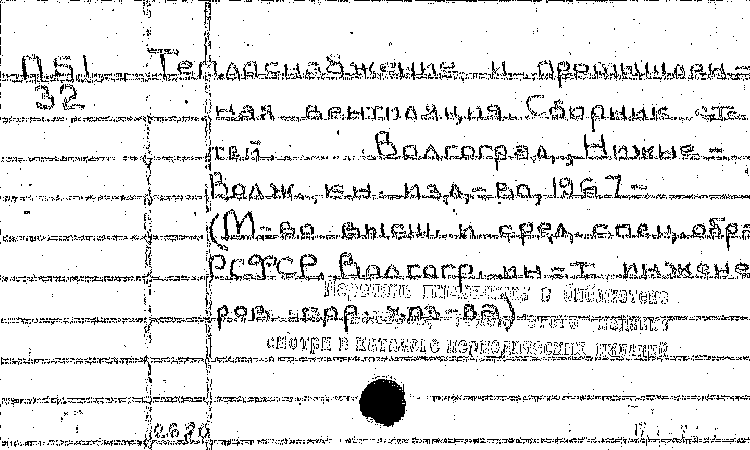 П51 Теплоснабжение и промышлен-
32 ная вентиляция. Сборник ста
тей. Волгоград, Нижне-
Волж. кн. изд-во, 1967-
(М-во высш. и сред. спец. обра
РСФСР. Волгогр. ин-т инжене
ров гор. хоз-ва)
Перечень имеющихся в библиотеке
этого издания
смотри в каталоге периодических изданий